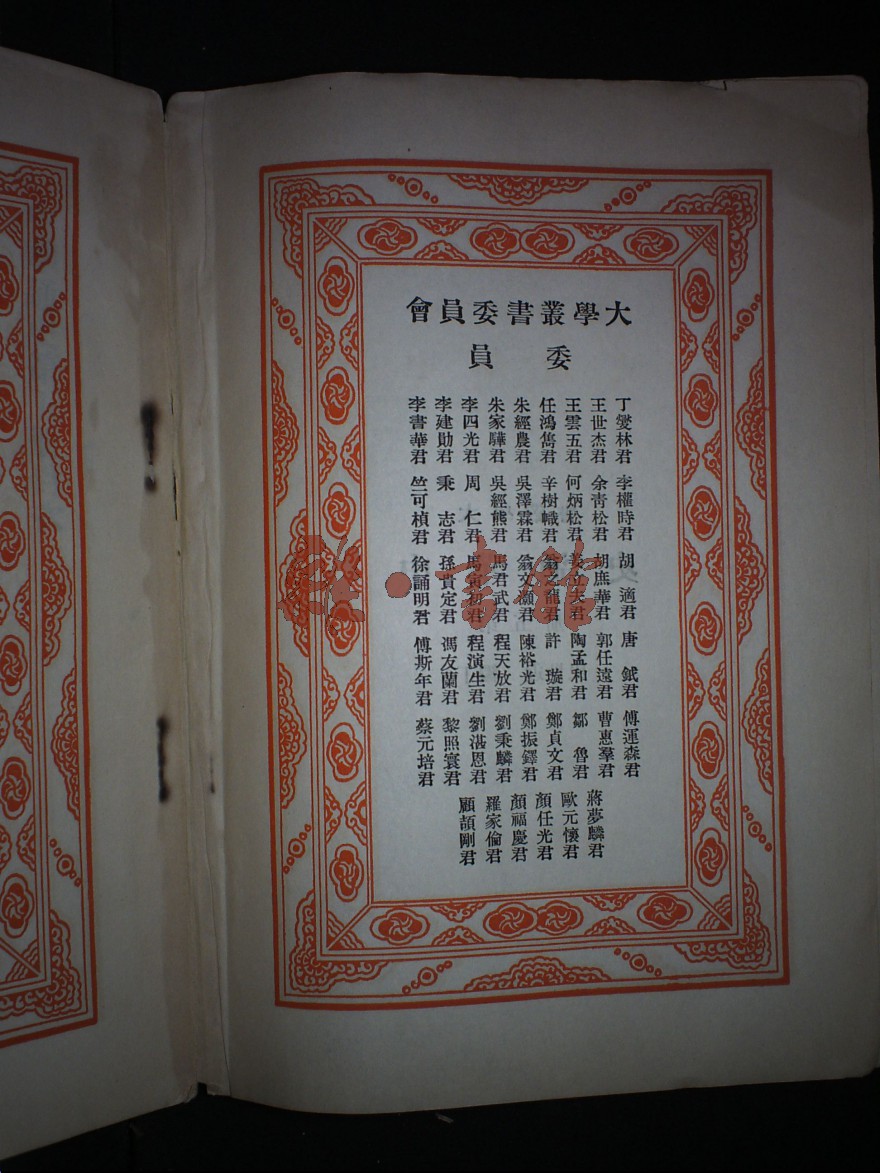 大學叢書委員會
委員
丁燮林君
王世杰君
王雲五君
任鴻雋君
朱經農君
朱家驊君
李四光君
李建勛君
李書華君
李權時君
余靑松君
何炳松君
辛樹幟君
吳澤霖君
吳經熊君
周仁君
秉志君
竺可楨君
胡適君
胡庶華君
姜立夫君
翁之龍君
翁文灝君
馬君武君
馬寅初君
孫貴定君
徐誦明君
唐鉞君
郭任遠君
陶孟和君
許璇君
陳裕光君
程天放君
程演生君
馮友蘭君
傅斯年君
傅運森君
曹惠羣君
鄒魯君
鄭貞文君
鄭振鐸君
劉秉麟君
劉湛恩君
黎照寰君
蔡元培君
蔣夢麟君
歐元懷君
顏任光君
顏福慶君
羅家倫君
顧頡剛君
書館